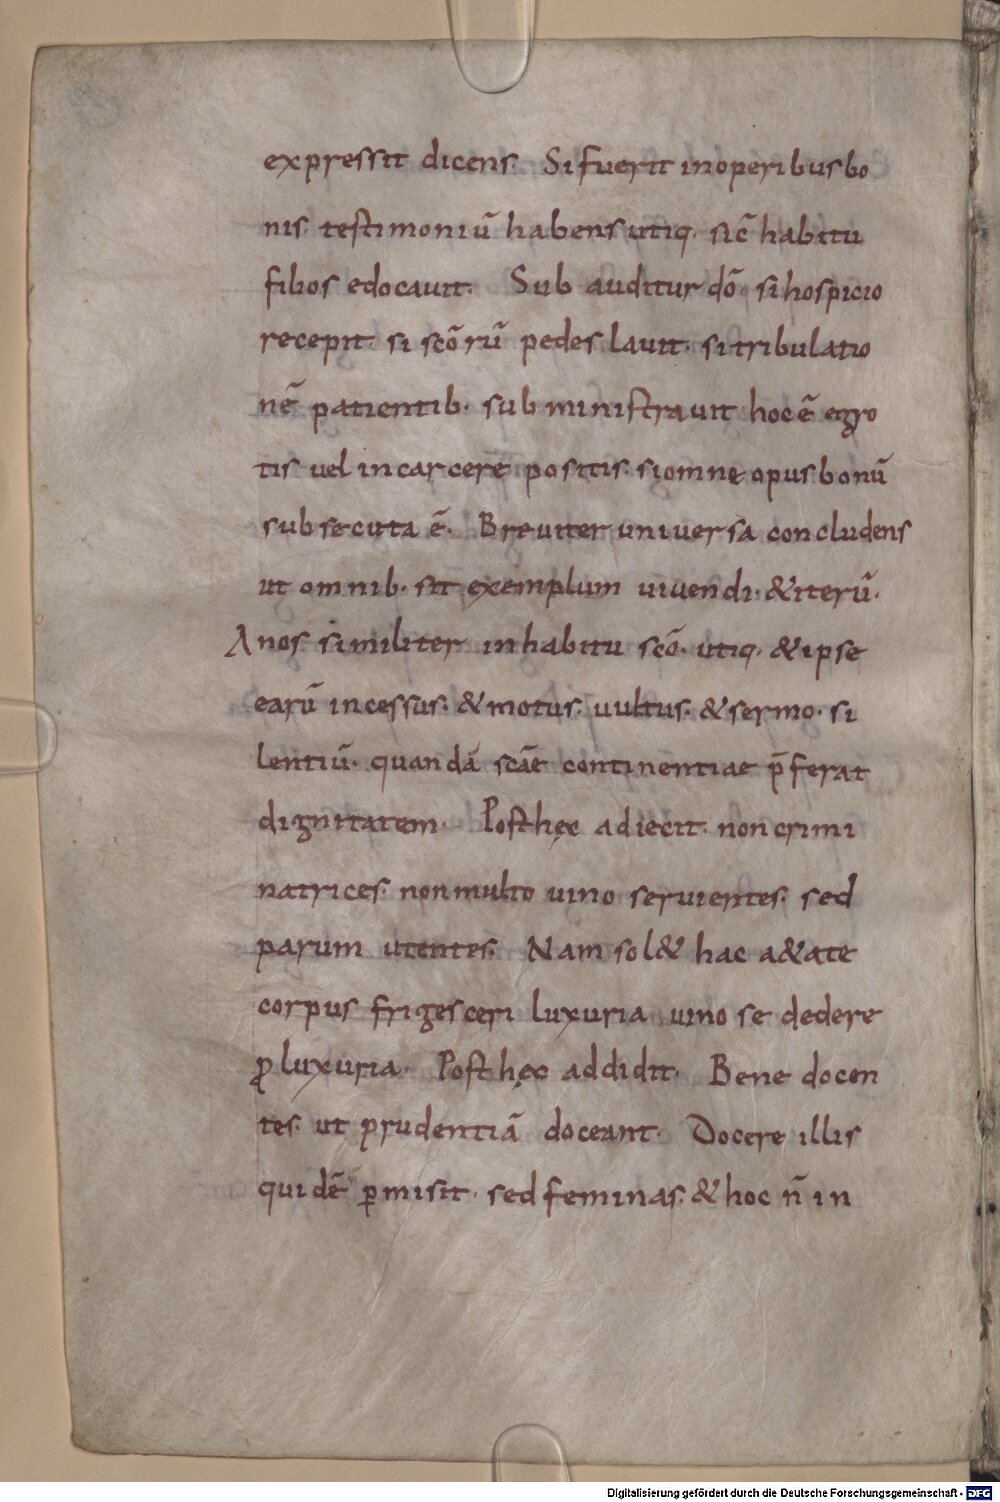 expressit dicens. Si fuerit in operibus bo
nis. testimoniū habens utiq. sic̄ habitu
filios edocauit. Sub auditur dō si hospicio
recepit. si scōrū pedes lauit. si tribulatio
nē patientib. subministrauit hoc ē egro
tis uel in carcere positis. si omne opus bonū
subsecuta ē. Breuiter uniuersa concludens
ut omnib. sit exemplum uiuendi. & iterū.
Anos similiter in habitu scō. utiq. & ipse
earū incessus. & motus. uultus. & sermo. si
lentiū. quandā scāe continentiae p̄ferat
dignitatem. Post hęc adiecit. non crimi
natrices. non multo uino seruientes. sed
parum utentes. Nam sol& hac a&ate
corpus frigesceri luxuria uino se dedere
ꝓ luxuria. Post hęc addidit. Bene docen
tes. ut prudentiā doceant. Docere illis
quidē ꝑmisit. sed feminas. & hoc n̄ in
Digitalisierung gefördert durch die Deutsche Forschungsgemeinschaft - DFG